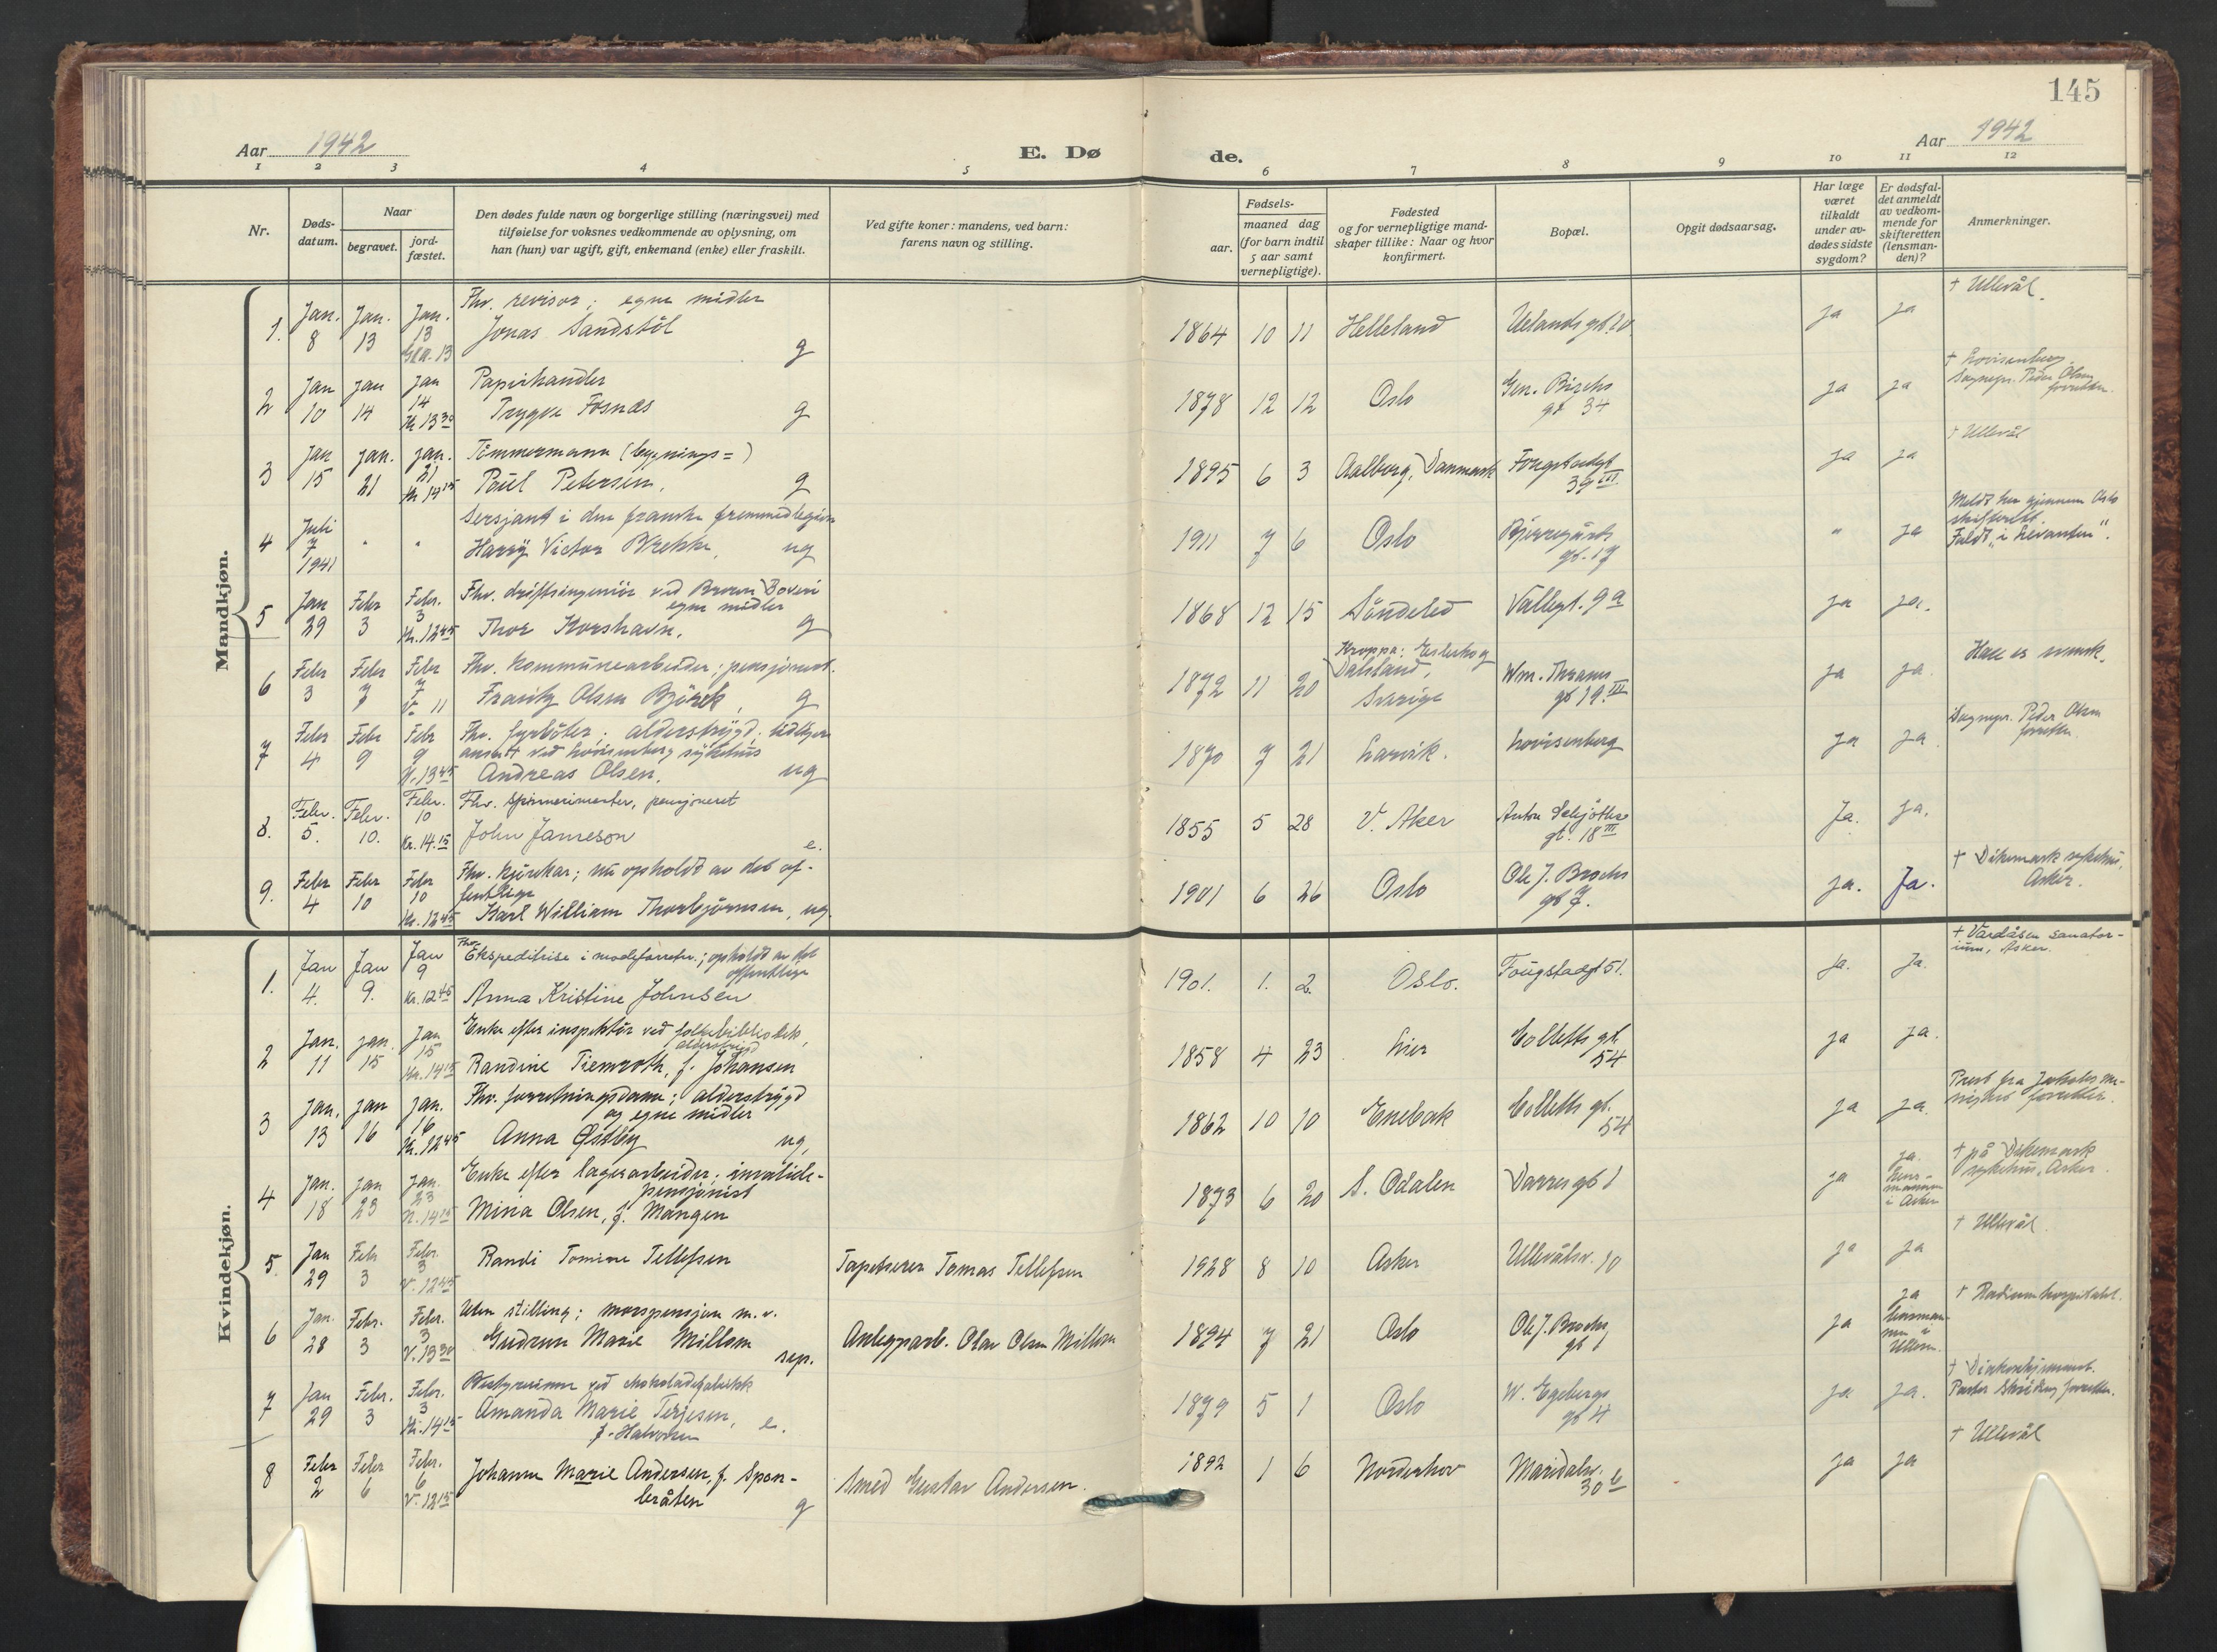 145
Aar 1942
E. Dø
de.
Aar 1942
1 2 3 4 5 6 7 8 9 10 11 12
Nr.
Døds-
datum.
Naar
begravet.
jord-
fæstet.
Den dødes fulde navn og borgerlige stilling (næringsvei) med
tilføielse for voksnes vedkommende av oplysning, om
han (hun) var ugift, gift, enkemand (enke) eller fraskilt.
Ved gifte koner: mandens, ved barn:
farens navn og stilling.
Fødsels-
aar.
maaned dag
(for barn indtil
5 aar samt
vernepligtige).
Fødested
og for vernepligtige mand-
skaper tillike: Naar og hvor
konfirmert.
Bopæl.
Opgit dødsaarsag.
Har læge
været
tilkaldt
under av-
dødes sidste
sygdom?
Er dødsfal-
det anmeldt
av vedkom-
mende for
skifteretten
(lensman-
den)?
Anmerkninger.
Mandkjøn.
1. Jan. 8 Jan. 13 Jan. 13
Fhv. revisor; egne midler
Jonas Sandstöl g
1864 10 11 Helleland Uelands gt. 20 ja ja † Ullevål.
2 Jan 10 Jan 14 Jan 14 Kl 13 30
Papirhandler
Trygve Fosnæs g
1878 12 12 Oslo Gen. Birchs gt 34 ja ja † Lovisenberg
Sognepr. Peder Olsen forretter.
3 Jan 15 Jan. 21 Jan. 21 Kl 14 15
Tömmermann (bygnings=)
Poul Petersen, g
1895 6 3 Aalborg, Danmark Fougstadgt 39 III ja ja † Ullevål
4 Juli 7 1941 " "
Sersjant i den franske fremmedlegion
Harry Victor Brekke, ug
1911 7 6 Oslo Bjerregårds gt. 17 " ja Meldt her gjennem Oslo
skifterett.
Faldt "i Levanten".
5 Jan 29 Febr 3 Febr. 3 Kl. 12 45
Fhv. driftsingeniör ved Brown Boveri
egne midler
Thor Korshavn, g
1868 12 15 Söndeled Vallegt. 9 a ja ja.
6 Febr 3 Febr 7 Febr 7 V. 11
Fhv. kommunearbeider; pensjonert.
Frantz Olsen Björck, g
1872 11 20 Kroppa: Dalsland, Sverige Wm. Thranes gt 19 III ja ja. Han er svensk.
7 Febr 4 Febr 9 Febr 9 Kl. 13 45
Fhv. fyrböter; alderstrygd; tidligere
ansatt ved Lovisenberg sykehus
Andreas Olsen, ug
1870 7 21 Larvik. Lovisenberg ja ja. Sognepr. Peder Olsen
forretter.
8. Febr. 5. Febr. 10. Febr. 10 Kl. 14.15
Fhv. spinnerimester, pensjoneret
John Jameson e.
1855 5 28 V. Aker Anton Schjöths gt. 18 III Ja. Ja.
9. Febr 4 Febr 10 Febr 10 Kl. 12 45
Fhv. kjörekar; nu opholdt av det of-
fentlige
Karl William Thorbjörnsen, ug.
1901 6 26 Oslo Ole J. Brochs gt 7. ja. Ja. † Dikemark sykehus,
Asker.
Kvindekjøn.
1. Jan 4. Jan 9. Jan 9 Kl. 12 45
Fhv. Ekspeditrise i moteforretn.; opholdt av det
offentlige
Anna Kristine Johnsen
1901. 1. 2. Oslo. Fougstadgt 51. Ja. Ja. † Vardåsen sanator-
ium, Asker.
2 Jan. 11 Jan. 15 Jan 15 Kl. 14 15
Enke efter inspektör ved folkebibliotek,
alderstrygd
Randine Tiemroth, f. Johansen
1858 4 23 Lier Colletts gt. 54 ja ja.
3 Jan. 13 Jan 16 Jan. 16 Kl. 12 45
Fhv. forretningsdame; alderstrygd
og egne midler
Anna Østby ug,
1862 10 10 Enebak Colletts gt. 54 ja ja. Prest fra Jakobs me-
nighet forretter.
4 Jan. 18 Jan 23 Jan. 23 Kl. 14 15
Enke efter lagerarbeider; invalide-
pensjonist
Mina Olsen, f. Mangen
1873 6 20 S. Odalen Darres gt 1 ja ja. Lens-
mannen
i Asker † på Dikemark
sykehus, Asker.
5. Jan 29 Febr 3 Febr. 3 V. 12 45
Randi Tomine Tellefsen
Tapetserer Tomas Tellefsen
1928 8 10 Asker Ullevålsv. 10 ja ja † Ullevål.
6 Jan. 28 Febr. 3 Febr. 3 V. 13 30
Uten stilling; morspensjon m.v.
Gudrun Marie Millom sep.
Anleggsarb. Olav Olsen Millom
1894 7 21 Oslo Ole J. Brochs gt 1 ja ja Lensman-
nen i
Ullern. † Radiumhospitalet.
7 Jan 29 Febr. 3 Febr. 3 Kl. 14 15
Bestyrerinne ved chokoladefabrikk
Amanda Marie Terjesen, e.
f. Halvorsen
1879 5 1 Oslo W. Egebergs gt 4 ja ja. † Diakonhjemmet.
Pastor forretter.
8 Febr 2 Febr 6 Febr. 6 V. 12 15
Johanne Marie Andersen, f. Spon-
bråten g
Smed Gustav Andersen.
1892 1 6 Norderhov Maridalsv. 30 b ja ja † Ullevål